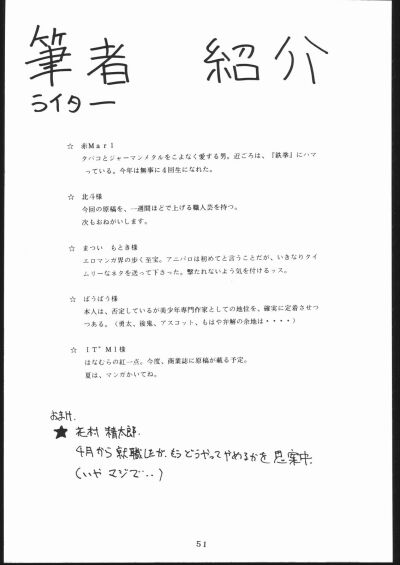 筆者 紹介
ライター
☆ 赤Mar1
タバコとジャーマンメタルをこよなく愛する男。近ごろは、『鉄拳』にハマ
っている。今年は無事に4回生になれた。
☆ 北斗様
今回の原稿を、一週間ほどで上げる職人芸を持つ。
次もおねがいします。
☆ まつい もとき様
エロマンガ界の歩く至宝。アニパロは初めてと言うことだが、いきなりタイ
ムリーなネタを送って下さった。撃たれないよう気を付けるッス。
☆ ばうばう様
本人は、否定しているが美少年専門作家としての地位を、確実に定着させつ
つある。（勇太、後鬼、アスコット、もはや弁解の余地は・・・・）
☆ IT"MI様
はなむらの紅一点。今度、商業誌に原稿が載る予定。
夏は、マンガかいてね。
おまけ.
★ 花村 精太郎.
4月から就職したが、もうどうやってやめるかを思案中.
(いや マジで・・)
51